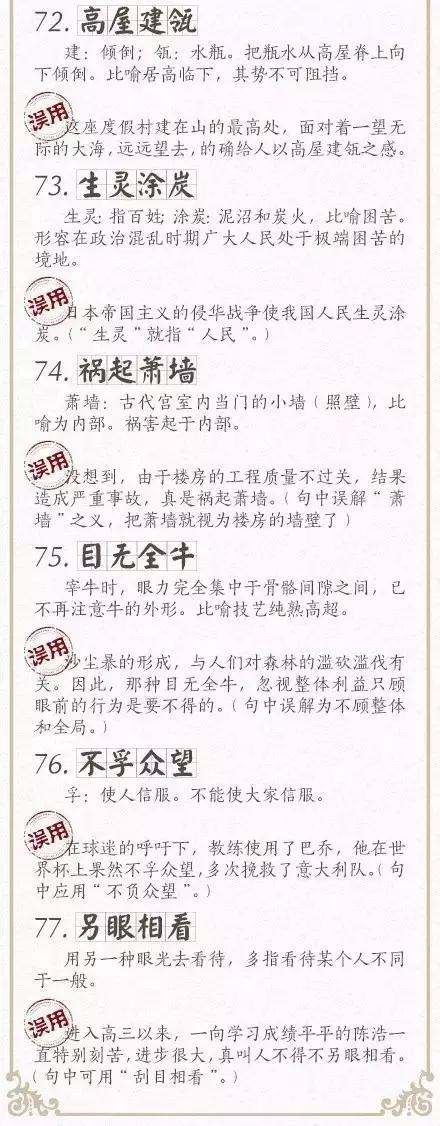 72. 高屋建瓴
建：倾倒；瓴：水瓶。把瓶水从高屋脊上向
下倾倒。比喻居高临下，其势不可阻挡。
误用
这座度假村建在山的最高处，面对着一望无
际的大海，远远望去，的确给人以高屋建瓴之感。
73. 生灵涂炭
生灵：指百姓；涂炭：泥沼和炭火，比喻困苦。
形容在政治混乱时期广大人民处于极端困苦的
境地。
误用
日本帝国主义的侵华战争使我国人民生灵涂
炭。（“生灵”就指“人民”。）
74. 祸起萧墙
萧墙：古代宫室内当门的小墙（照壁），比
喻为内部。祸害起于内部。
误用
没想到，由于楼房的工程质量不过关，结果
造成严重事故，真是祸起萧墙。（句中误解“萧
墙”之义，把萧墙就视为楼房的墙壁了）
75. 目无全牛
宰牛时，眼力完全集中于骨骼间隙之间，已
不再注意牛的外形。比喻技艺纯熟高超。
误用
沙尘暴的形成，与人们对森林的滥砍滥伐有
关。因此，那种目无全牛，忽视整体利益只顾
眼前的行为是要不得的。（句中误解为不顾整体
和全局。）
76. 不孚众望
孚：使人信服。不能使大家信服。
误用
在球迷的呼吁下，教练使用了巴乔，他在世
界杯上果然不孚众望，多次挽救了意大利队。（句
中应用“不负众望”。）
77. 另眼相看
用另一种眼光去看待，多指看待某个人不同
于一般。
误用
进入高三以来，一向学习成绩平平的陈浩一
直特别刻苦，进步很大，真叫人不得不另眼相看。
（句中可用“刮目相看”。）